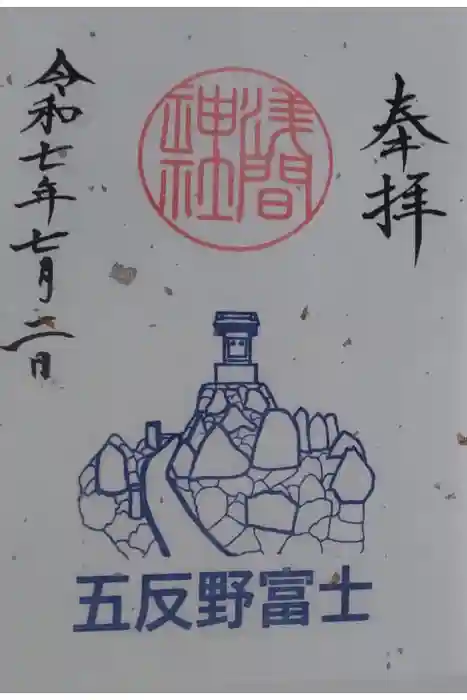 奉拝
浅間
神社
令和七年七月二日
五反野富士